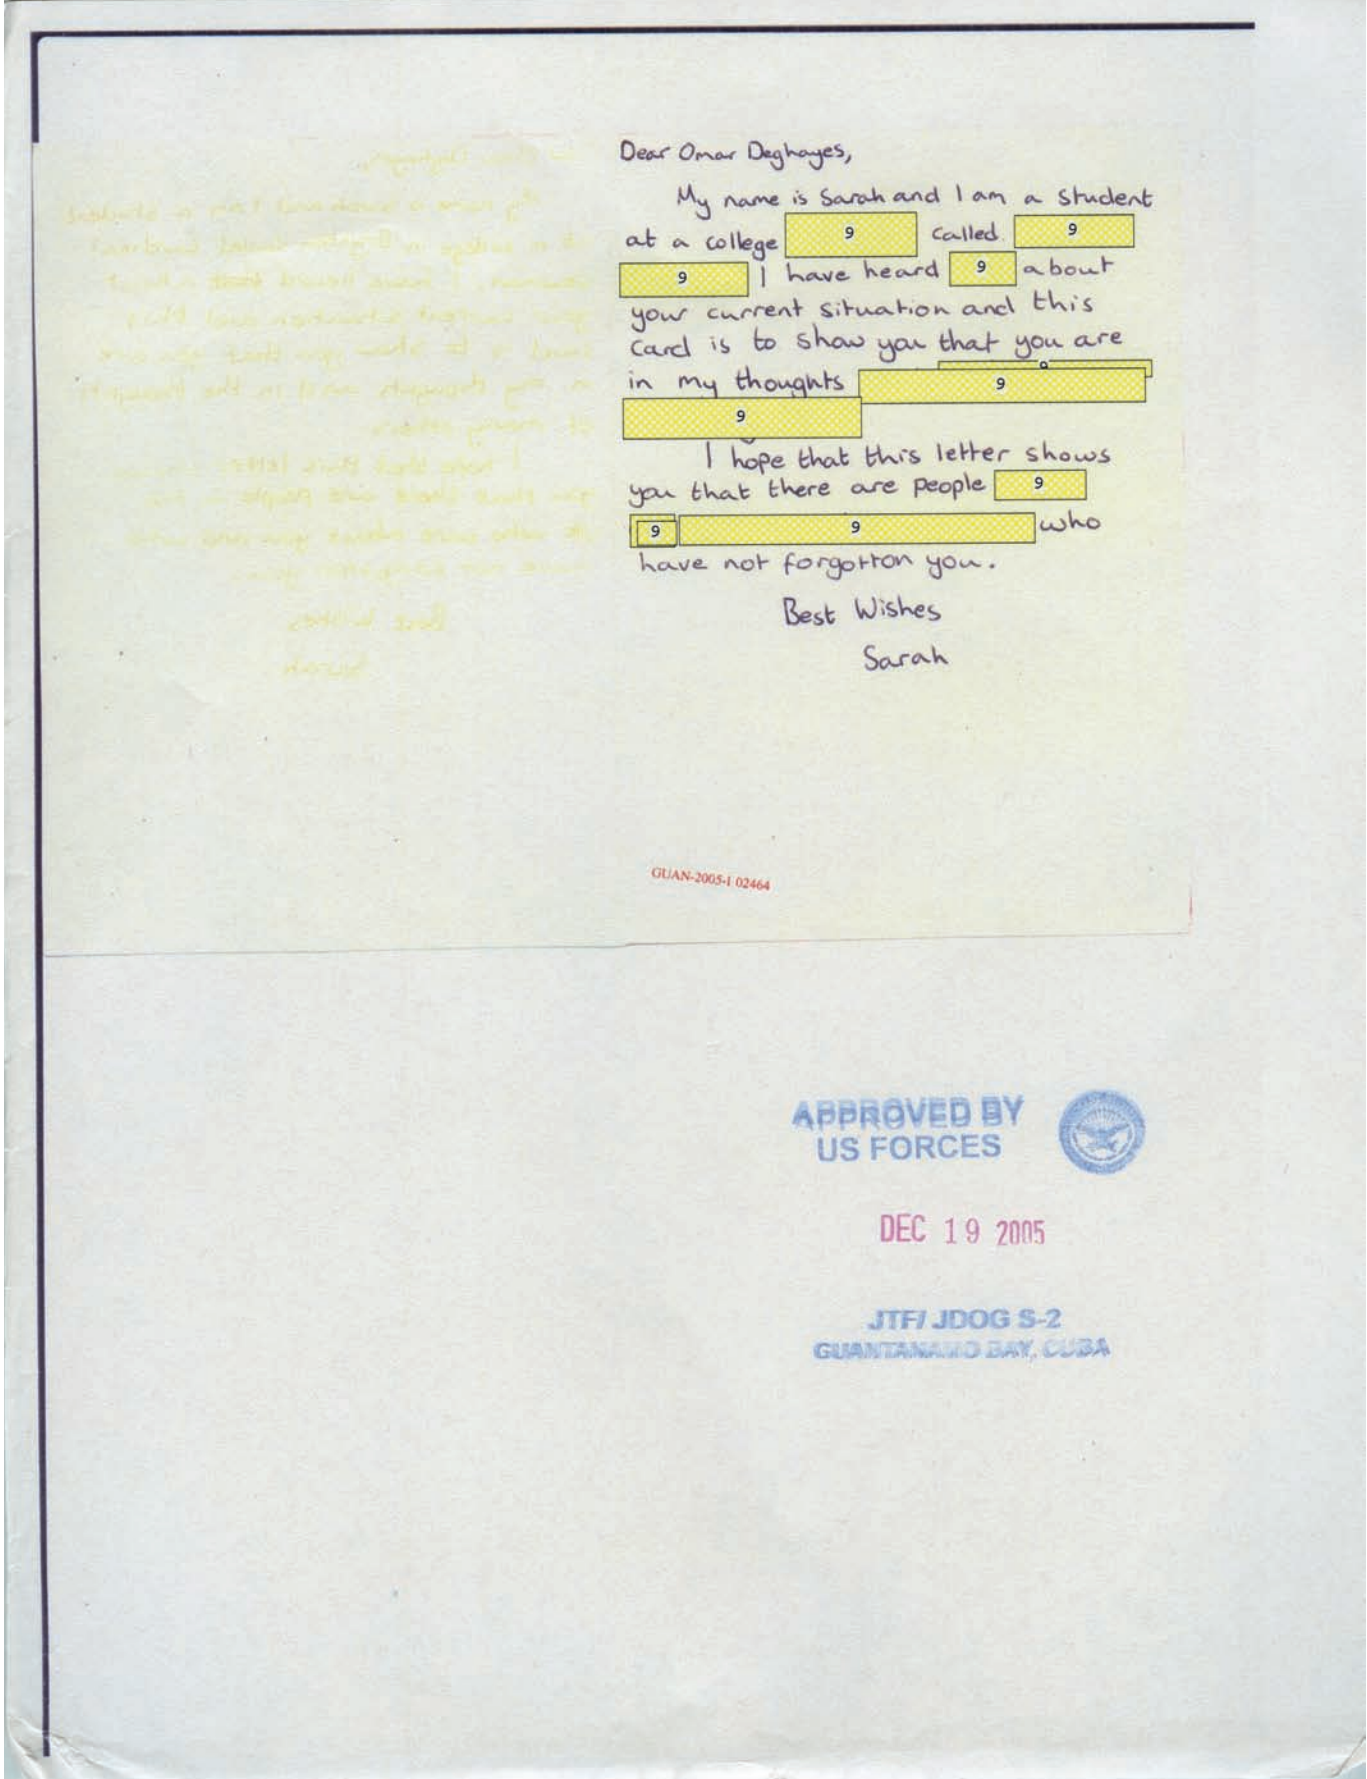 Dear Omar Deghayes,
My name is Sarah and I am a student
at a college 9 called 9
9 I have heard 9 about
your current situation and this
card is to show you that you are
in my thoughts 9 9
9
I hope that this letter shows
you that there are people 9
9 9 who
have not forgotton you.
Best Wishes
Sarah
GUAN-2005-1 02464
APPROVED BY
US FORCES
DEC 19 2005
JTF/ JDOG S-2
GUANTANAMO BAY, CUBA